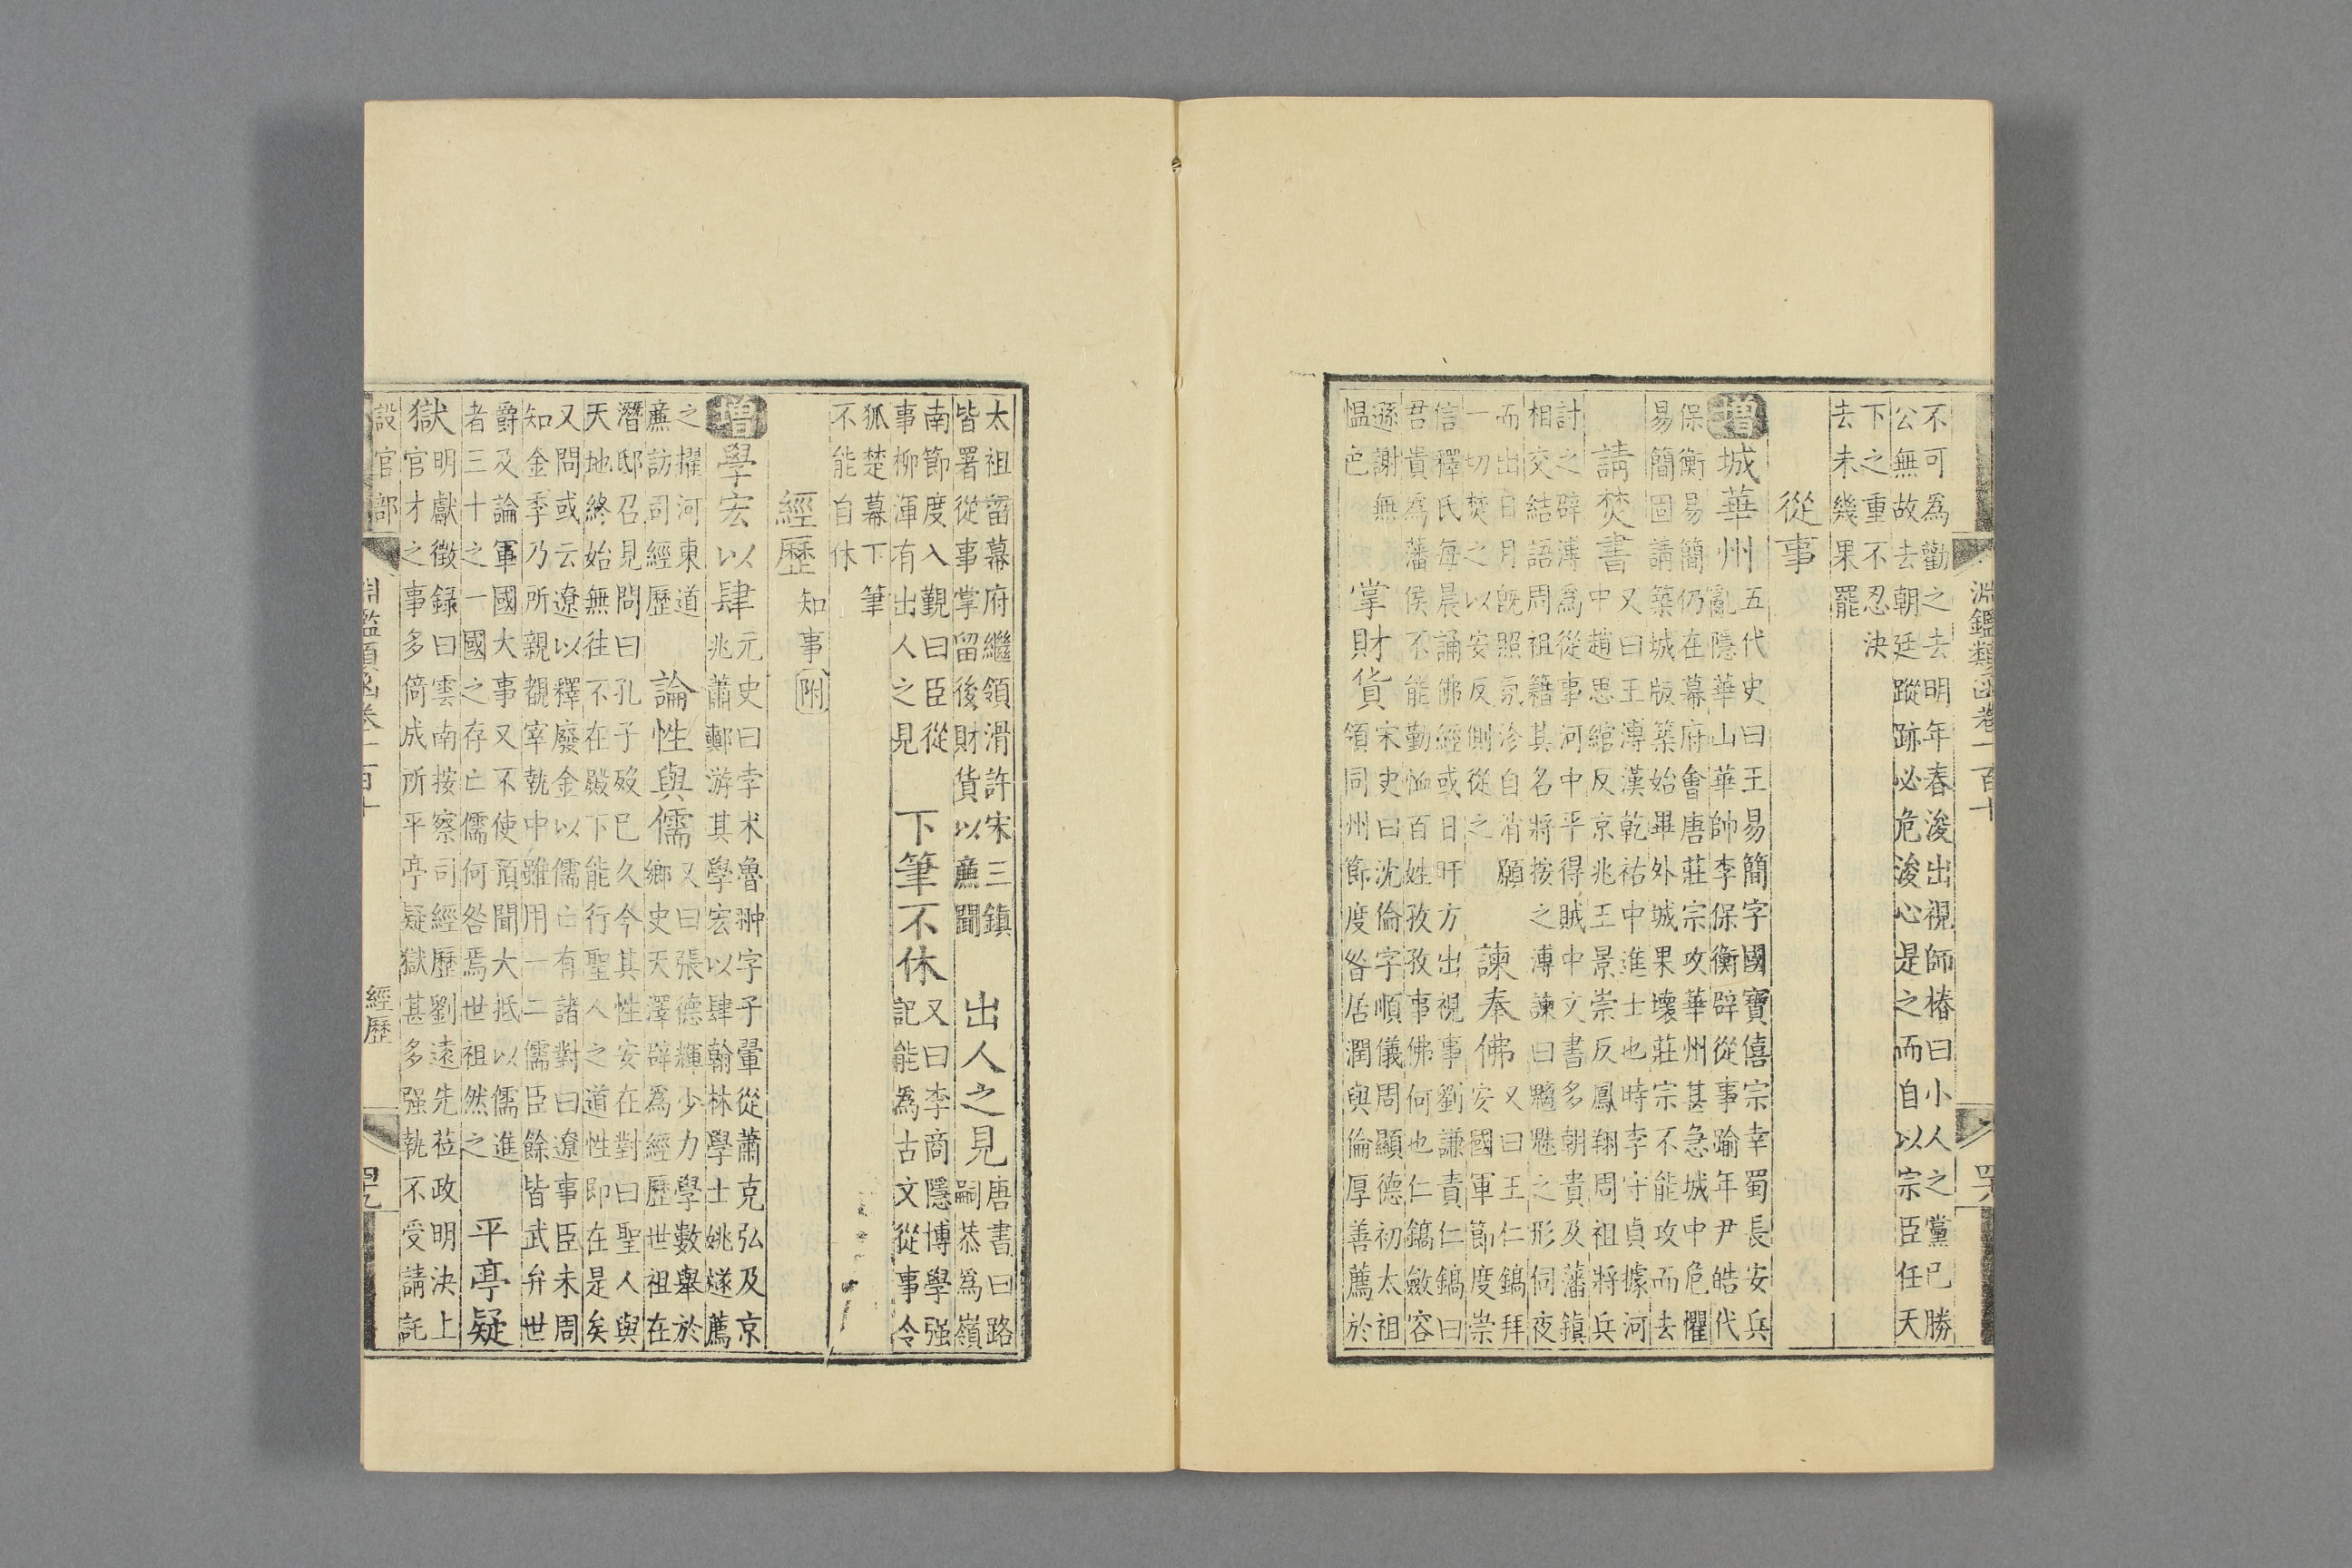 淵鑑類函卷一百十
不可為勸之去明年春浚出視師椿曰小人之黨已勝
公無故去朝廷蹤跡必危浚心是之而自以宗臣任天
下之重不忍決
去未幾果罷
從事
增城華州
五代史曰王易簡字國寶僖宗幸蜀長安兵
亂隱華山華帥李保衡辟從事踰年尹皓代
保衡易簡仍在幕府會唐莊宗攻華州甚急城中危懼
易簡固請築城版築始畢外城果壞莊宗不能攻而去
請焚書
又曰王溥漢乾祐中進士也時李守貞據河
中趙思綰反京兆王景崇反鳳翔周祖將兵
計之辟溥為從事河中平得賊中文書多朝貴及藩鎮
相交結語周祖籍其名將按之溥諫曰魑魅之形伺夜
而出日月旣照氛沴自消願
一切焚之以安反側從之
諫奉佛
又曰王仁鎬拜
安國軍節度崇
信釋氏每晨誦佛經或日旰方出視事劉謙責仁鎬曰
君貴為藩侯不能勤恤百姓孜孜事佛何也仁鎬斂容
遜謝無
慍色
掌財貨
宋史曰沈倫字順儀周顯德初太祖
領同州節度昝居潤與倫厚善薦於
太祖留幕府繼領滑許宋三鎮
皆署從事掌留後財貨以廉聞
出人之見
唐書曰路
嗣恭為嶺
南節度入覲曰臣從
事柳渾有出人之見
下筆不休
又曰李商隱博學强
記能為古文從事令
狐楚幕下筆
不能自休
經歷
知事附
增學宏以肆
元史曰孛术魯翀字子翬從蕭克弘及京
兆蕭游其學宏以肆翰林學士姚燧薦
之擢河東道
廉訪司經歷
論性與儒
又曰張德輝少力學數舉於
鄉史天澤辟為經歷世祖在
潛邸召見問曰孔子歿已久今其性安在對曰聖人與
天地終始無往不在殿下能行聖人之道性即在是矣
又問或云遼以釋廢金以儒亡有諸對曰遼事臣未周
知金季乃所親覩宰執中雖用一二儒臣餘皆武弁世
爵及論軍國大事又不使預聞大抵以儒進
者三十之一國之存亡儒何咎焉世祖然之
平亭疑
獄
明獻徵録曰雲南按察司經歷劉遠先莅政明決上
官才之事多倚成所平亭疑獄甚多强執不受請託
設官部
淵鑑類函卷一百十
經歷